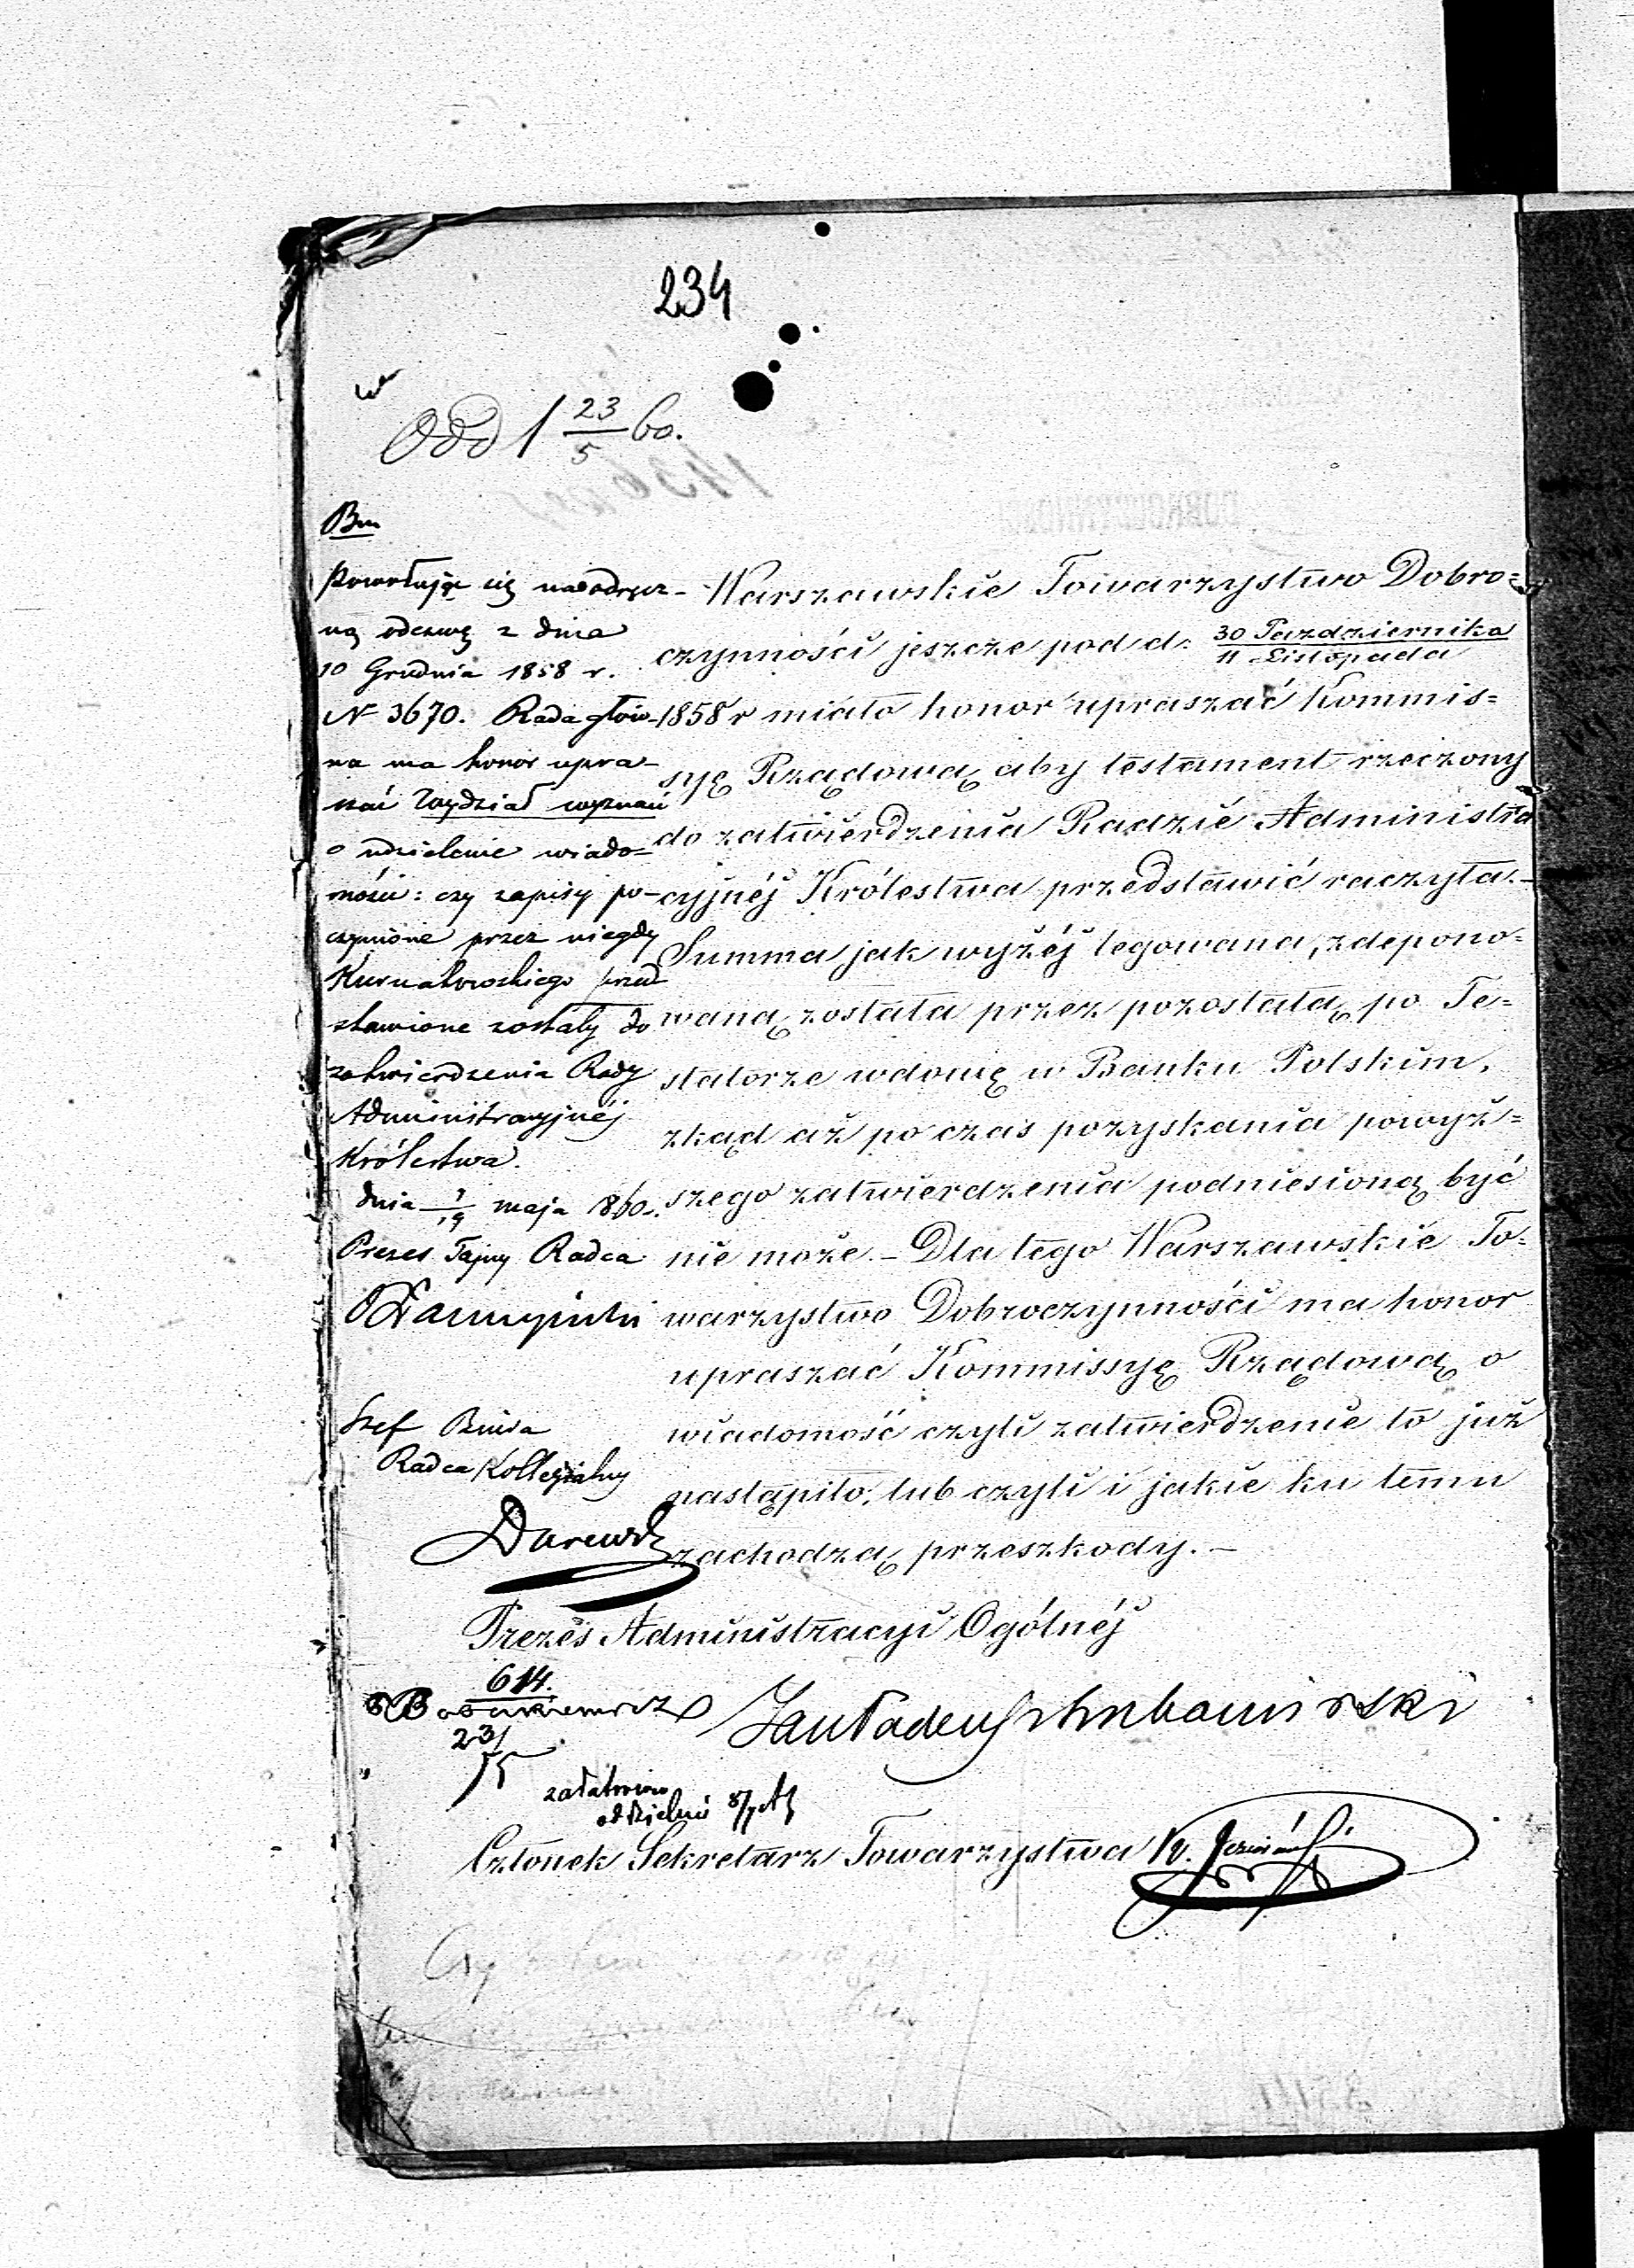 234
Odd 1 23/5 60.
Bm
Powołując się na odręcz-
ną odezwę z dnia
10 Grudnia 1858 r.
N 3670. Rada głów-
na ma honor upra-
szać Wydział wyznań
o udzielenie wiado-
mości: czy zapisy po-
czynione przez niegdy
Kurnatowskiego przed
stawione zostały do
zatwierdzenia Rady
Administracyjnéj
Królestwa.
dnia 7/19 maja 1860.
Prezes Tajny Radca
Szef Biura
Radca Kollegialny
Warszawskie Towarzystwo Dobro=
czynności jeszcze pod d. 30 Pazdziernika / 11 Listopada
1858 r miało honor upraszać Kommis=
syę Rządową aby testament rzeczony
do zatwierdzenia Radzie Administra
cyjnéj Królestwa przedstawić raczyła.-
Summa jak wyżéj legowana, zdepono=
waną została przez pozostałą po Te=
statorze wdowę w Banku Polskim,
zkąd aż po czas pozyskania powyż=
szego zatwierdzenia podniesioną być
nie może. - Dla tego Warszawskie To=
warzystwo Dobroczynności ma honor
upraszać Kommissyę Rządową o
wiadomość czyli zatwierdzenie to już
nastąpiło, lub czyli i jakie ku temu
zachodzą przeszkody. -
Prezes Administracyi Ogólnéj
614.
Jan Tadeusz Lubomirski
231
załatwiono
oddzielnie
Członek Sekretarz Towarzystwa